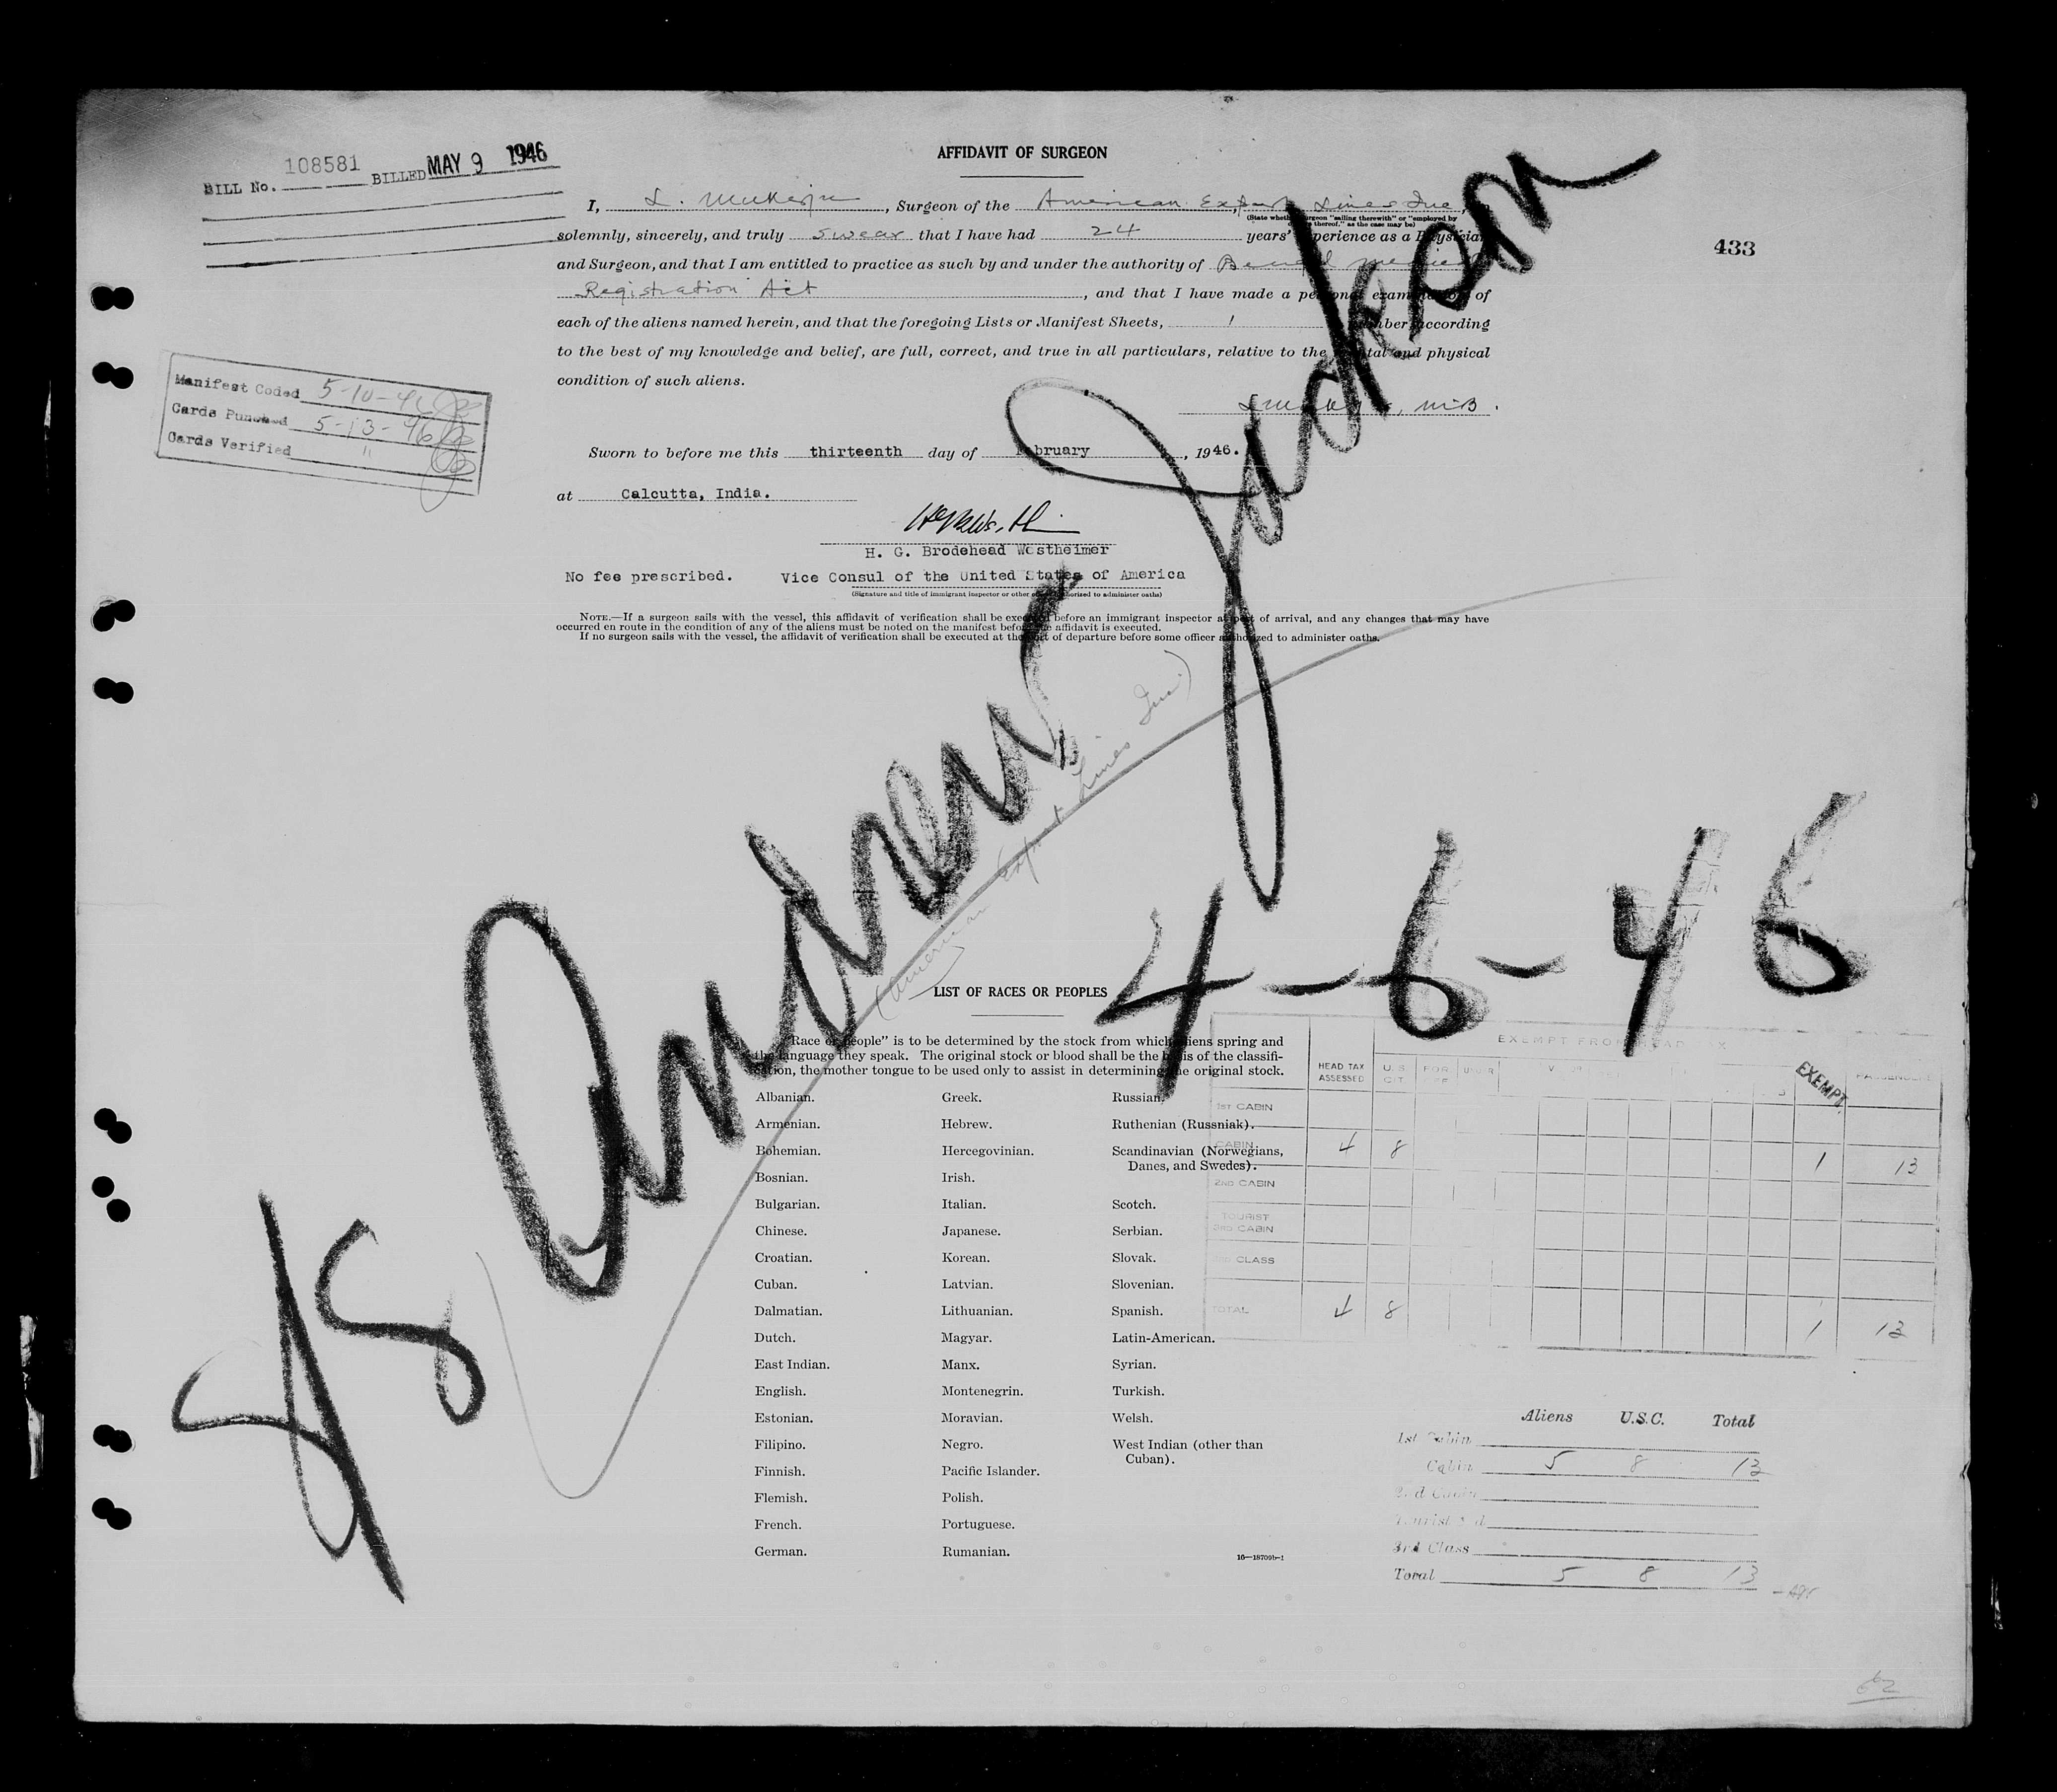 AFFIDAVIT OF SURGEON
BILL No. 108581 BILLED MAY 9 1946
433
I, L. Mukerjee, Surgeon of the American Export Lines Inc,
(State whether surgeon "sailing therewith" or "employed by
thereof," as the case may be)
solemnly, sincerely, and truly swear that I have had 24 years' experience as a Physician
and Surgeon, and that I am entitled to practice as such by and under the authority of Bengal Medical
Registration Act, and that I have made a personal examination of
each of the aliens named herein, and that the foregoing Lists or Manifest Sheets, 1 number according
to the best of my knowledge and belief, are full, correct, and true in all particulars, relative to the mental and physical
condition of such aliens.
L Mukerjee, M.B.
Manifest Coded 5-10-46
Cards Punched 5-13-46
Cards Verified "
Sworn to before me this thirteenth day of February, 1946.
at Calcutta, India.
H. G. Brodehead Westheimer
No fee prescribed. Vice Consul of the United States of America
(Signature and title of immigrant inspector or other officer authorized to administer oaths)
NOTE.—If a surgeon sails with the vessel, this affidavit of verification shall be executed before an immigrant inspector at port of arrival, and any changes that may have
occurred en route in the condition of any of the aliens must be noted on the manifest before the affidavit is executed.
If no surgeon sails with the vessel, the affidavit of verification shall be executed at the port of departure before some officer authorized to administer oaths.
SS Andrew Jackson
(American Export Lines Inc.)
4-6-46
LIST OF RACES OR PEOPLES
"Race or people" is to be determined by the stock from which aliens spring and
the language they speak. The original stock or blood shall be the basis of the classifi-
cation, the mother tongue to be used only to assist in determining the original stock.
Albanian. Greek. Russian.
Armenian. Hebrew. Ruthenian (Russniak).
Bohemian. Hercegovinian. Scandinavian (Norwegians,
Danes, and Swedes).
Bosnian. Irish.
Bulgarian. Italian. Scotch.
Chinese. Japanese. Serbian.
Croatian. Korean. Slovak.
Cuban. Latvian. Slovenian.
Dalmatian. Lithuanian. Spanish.
Dutch. Magyar. Latin-American.
East Indian. Manx. Syrian.
English. Montenegrin. Turkish.
Estonian. Moravian. Welsh.
Filipino. Negro. West Indian (other than
Cuban).
Finnish. Pacific Islander.
Flemish. Polish.
French. Portuguese.
German. Rumanian.
16—18709b-1
EXEMPT FROM HEAD TAX
HEAD TAX ASSESSED U.S. CIT. EXEMPT PASSENGERS
1ST CABIN
CABIN 4 8 1 13
2ND CABIN
TOURIST
3RD CABIN
3RD CLASS
TOTAL 4 8 1 13
Aliens U.S.C. Total
1st Cabin
Cabin 5 8 13
2nd Cabin
Tourist 3rd
3rd Class
Total 5 8 13
62